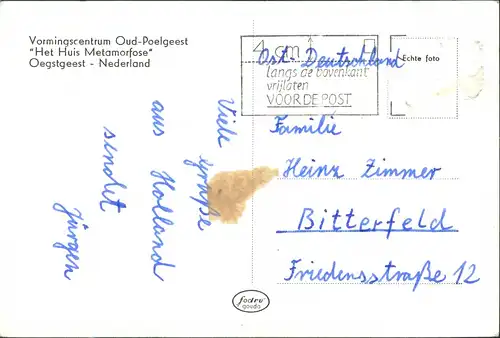 Vormingscentrum Oud-Poelgeest
"Het Huis Metamorfose"
Oegstgeest - Nederland
4 cm
langs de bovenkant
vrijlaten
VOOR DE POST
Echte foto
Ost-Deutschland
Viele Grüße
aus Holland
sendet
Jürgen
Familie
Heinz Zimmer
Bitterfeld
Friedensstraße 12
fodru
gouda